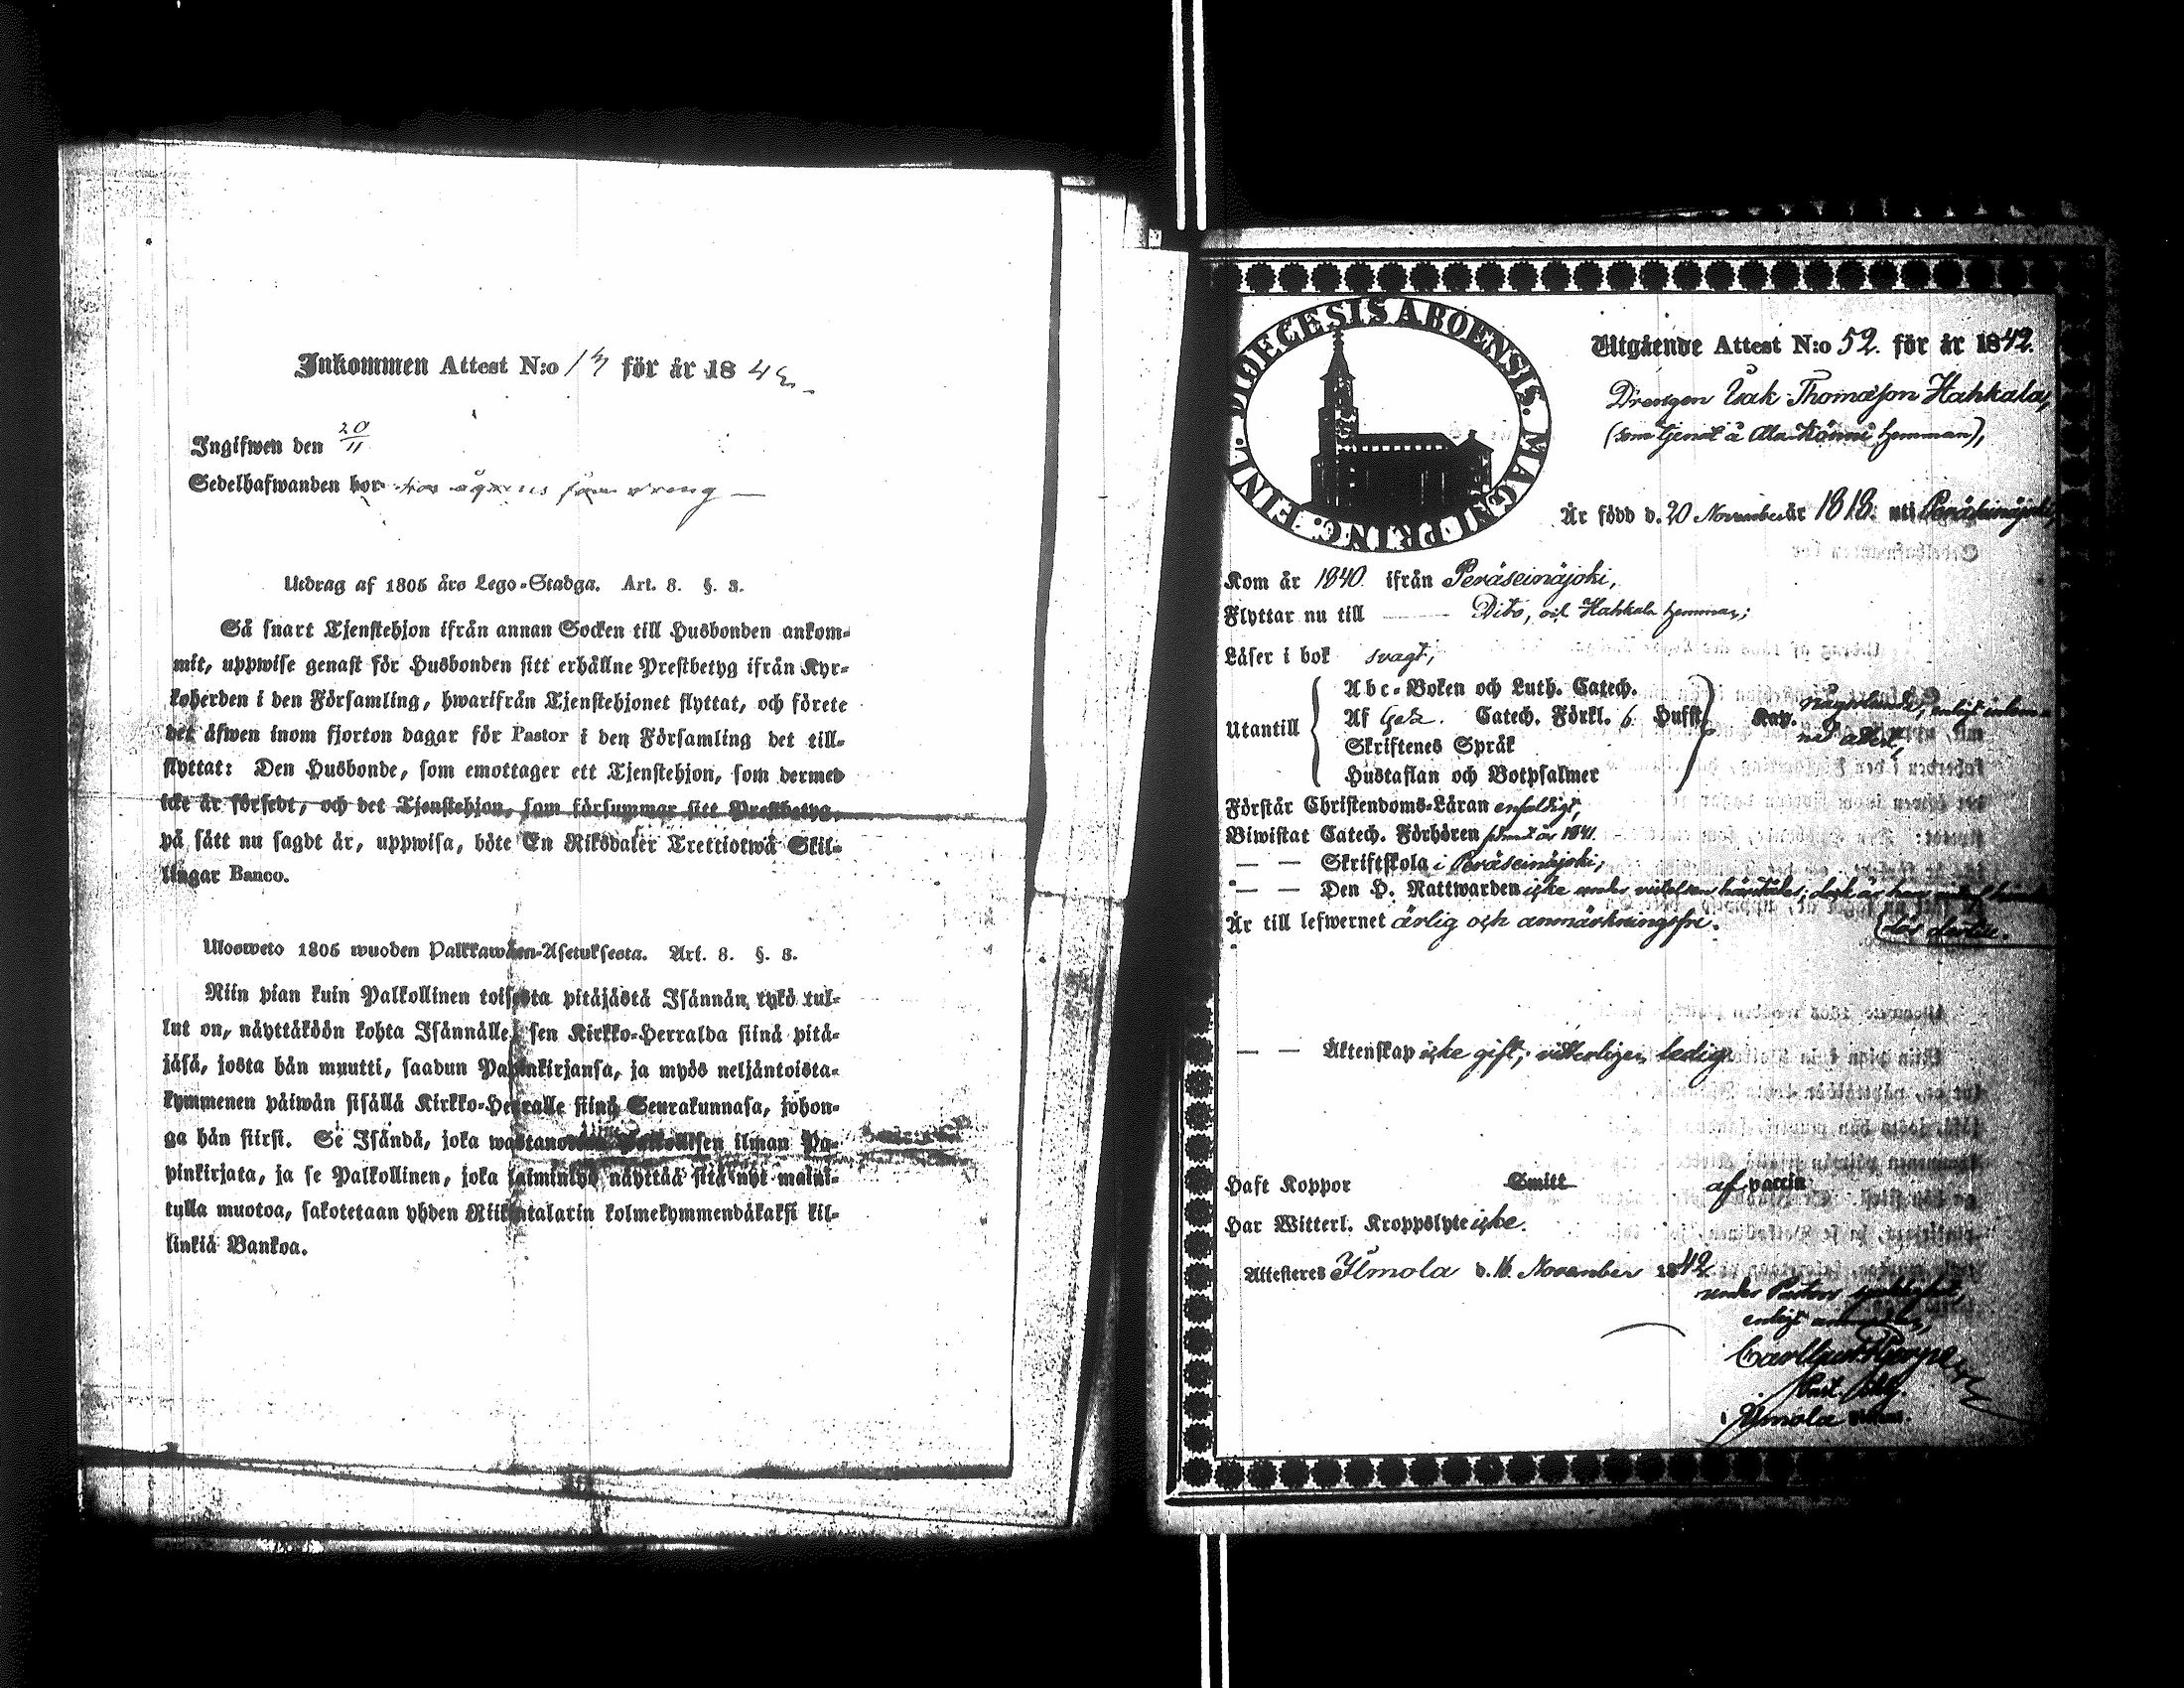 Inkommen Attest N:o 13 för år 1842
Ingifwen den 20/11
Sedelhafwanden bor
Utdrag af 1805 års Lego-Stadga. Art. 8. §. 3.
Så snart Tjenstehjon ifrån annan Socken till Husbonden ankom-
mit, uppwise genast för Husbonden sitt erhållne Prestbetyg ifrån Kyr-
koherden i den Församling, hwarifrån Tjenstehjonet flyttat, och förete
det äfwen inom fjorton dagar för Pastor i den Församling det till-
flyttat: Den Husbonde, som emottager ett Tjenstehjon, som dermed
icke är försedt, och det Tjenstehjon, som försummar sitt Prestbetyg,
på sätt nu sagdt är, uppwisa, böte En Riksdaler Trettiotwå Skil-
lingar Banco.
Ulosweto 1805 wuoden Palkkawäen-Asetuksesta. Art. 8. §. 3.
Niin pian kuin Palkollinen toisesta pitäjästä Isännän tykö tul-
lut on, näyttäköön kohta Isännälle, sen Kirkko-Herralda siinä pitä-
jäsä, josta hän muutti, saadun Papinkirjansa, ja myös neljäntoista-
kymmenen päiwän sisällä Kirkko-Herralle siinä Seurakunnasa, johon-
ga hän siirsi. Se Isändä, joka wastanottaa Palkollisen ilman Pa-
pinkirjata, ja se Palkollinen, joka laiminlyö näyttää sitä nyt maini-
tulla muotoa, sakotetaan yhden Riikintalarin kolmekymmendäkaksi kil-
linkiä Bankoa.
FINL. DIOECESIS ABOENSIS. MAGNI DRING:
Utgående Attest N:o 52. för år 1842.
Drengen Isak Thomasson Hahkala,
(som tjenat å Ala-Könni hemman),
Är född d. 20 November år 1818. uti Peräseinäjoki,
Kom år 1840. ifrån Peräseinäjoki,
Flyttar nu till Dito, och Hahkala hemman;
Läser i bok svagt,
Utantill
Abc-Boken och Luth. Catech.
Af Catech. Förkl. 6 Hufst.
Skriftenes Språk
Hustaflan och Botpsalmer
Kap. någorlunda, enligt inkom-
ne attest,
Förstår Christendoms-Läran enfaldigt,
Biwistat Catech. Förhören år 1841.
— — Skriftskola i Peräseinäjoki,
— — Den H. Nattwarden icke under vistelsen härstädes, dock är han
Är till lefwernet ärlig och anmärkningsfri.
— — Äktenskap icke gift; vitterligen ledig.
Haft Koppor Smitt af vaccin
Har Witterl. Kroppslyte icke.
Attesteres Ilmola d. 16. November 1842.
under Pastors sjuklighet,
enligt
Past. adj.
i Ilmola